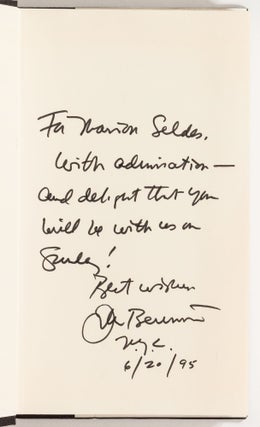 For Marian Seldes,
With admiration —
and delight that you
will be with us on
Sunday!
Best wishes
N.Y.C.
6/20/95